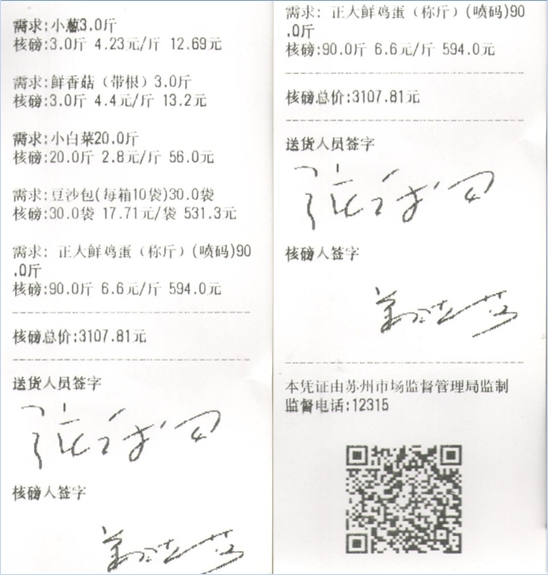 需求:小葱3.0斤
核磅:3.0斤 4.23元/斤 12.69元
需求:鲜香菇（带根）3.0斤
核磅:3.0斤 4.4元/斤 13.2元
需求:小白菜20.0斤
核磅:20.0斤 2.8元/斤 56.0元
需求:豆沙包(每箱10袋)30.0袋
核磅:30.0袋 17.71元/袋 531.3元
需求: 正大鲜鸡蛋（称斤）(喷码)90
.0斤
核磅:90.0斤 6.6元/斤 594.0元
核磅总价:3107.81元
送货人员签字
核磅人签字
需求: 正大鲜鸡蛋（称斤）(喷码)90
.0斤
核磅:90.0斤 6.6元/斤 594.0元
核磅总价:3107.81元
送货人员签字
核磅人签字
本凭证由苏州市场监督管理局监制
监督电话:12315